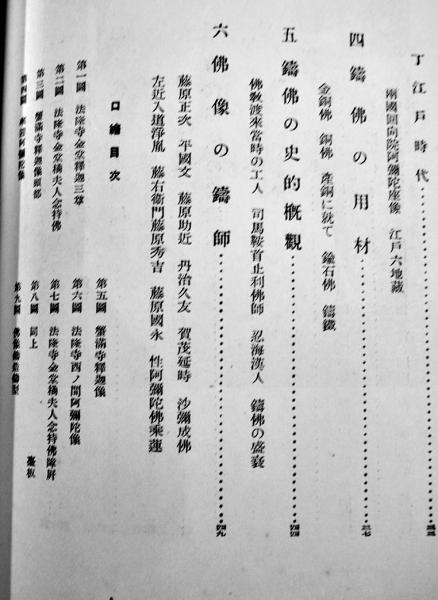 丁 江戸時代
兩國回向院阿彌陀座像 江戸六地藏
四 鑄佛の用材 三七
金銅佛 銅佛 產銅に就て 鍮石佛 鑄鐵
五 鑄佛の史的概觀 四四
佛敎渡來當時の工人 司馬鞍首止利佛師 忍海漢人 鑄佛の盛衰
六 佛像の鑄師 四九
藤原正次 平國文 藤原助近 丹治久友 賀茂延時 沙彌成佛
左近入道淨胤 藤右衞門藤原秀吉 藤原國永 性阿彌陀佛乘蓮
口繪目次
第一圖 法隆寺金堂釋迦三尊
第二圖 法隆寺金堂橘夫人念持佛
第三圖 蟹滿寺釋迦像頭部
第四圖 阿彌陀像
第五圖 蟹滿寺釋迦像
第六圖 法隆寺西ノ間阿彌陀像
第七圖 法隆寺金堂橘夫人念持佛障屛
第八圖 同上 臺板
第九圖 佛像鑄造鑄型